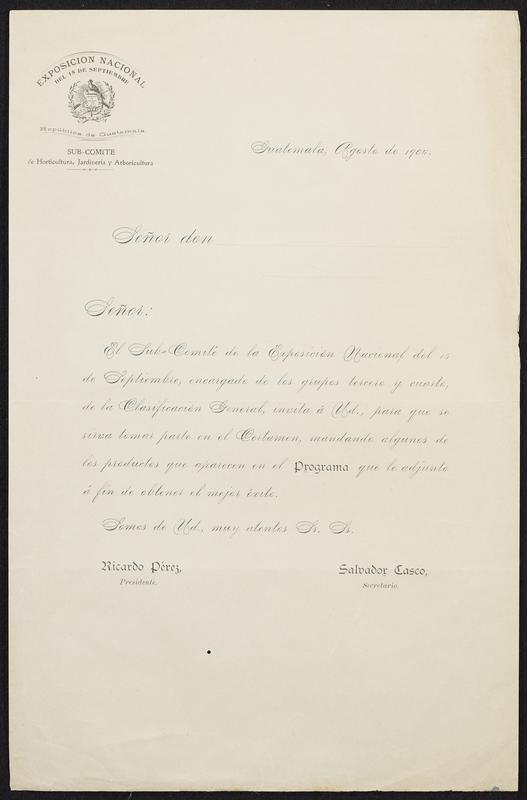 EXPOSICION NACIONAL
DEL 15 DE SEPTIEMBRE
República de Guatemala
SUB-COMITE
de Horticultura, Jardinería y Arboricultura
Guatemala, Agosto de 1904.
Señor don
Señor:
El Sub-Comité de la Exposición Nacional del 15
de Septiembre, encargado de los grupos tercero y cuarto,
de la Clasificación General, invita á Ud., para que se
sirva tomar parte en el Certamen, mandando algunos de
los productos que aparecen en el Programa que le adjunto
á fin de obtener el mejor éxito.
Somos de Ud., muy atentos Ss. Ss.
Ricardo Pérez,
Presidente.
Salvador Casco,
Secretario.